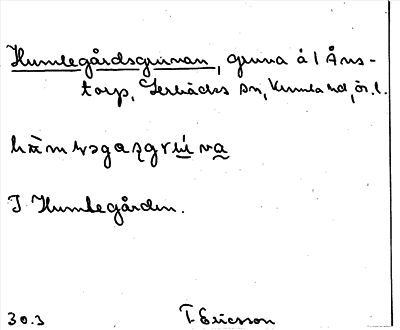 Humlegårdsgruvan, gruva å 1 Åns-
torp, Lerbäcks sn, Kumla hd, ör. l.
I Humlegården.
30.3 T. Ericsson